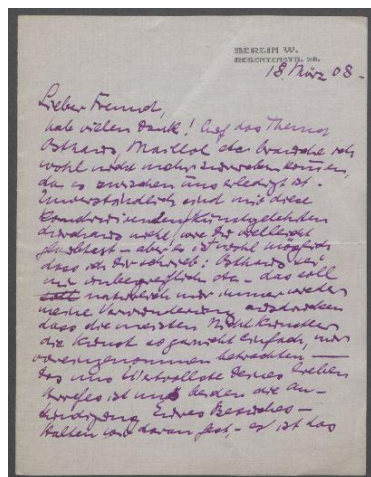 BERLIN W.
REGENTENSTR. 20.
18. März 08 -
Lieber Freund,
hab vielen Dank! Auf das Thema
Osthaus, Maillol etc brauche ich
wohl nicht mehr einzugehen können,
da es zwischen uns erledigt ist -
Unverständlich sind mir diese
Kunstgelehrten
durchaus nicht, wie Du vielleicht
glaubtest - aber es ist wohl möglich
dass ich Dir schrieb: Osthaus sei
mir unbegreiflich etc - das soll
natürlich nur immer wieder
meine Verwunderung ausdrücken
dass die meisten Nicht Künstler
die Kunst so garnicht einfach, nur
voreingenommen betrachten —
das uns Wertvollste Deines lieben
Briefes ist uns beiden die An-
kündigung Eures Besuches -
Halten wir daran fest, - es ist das